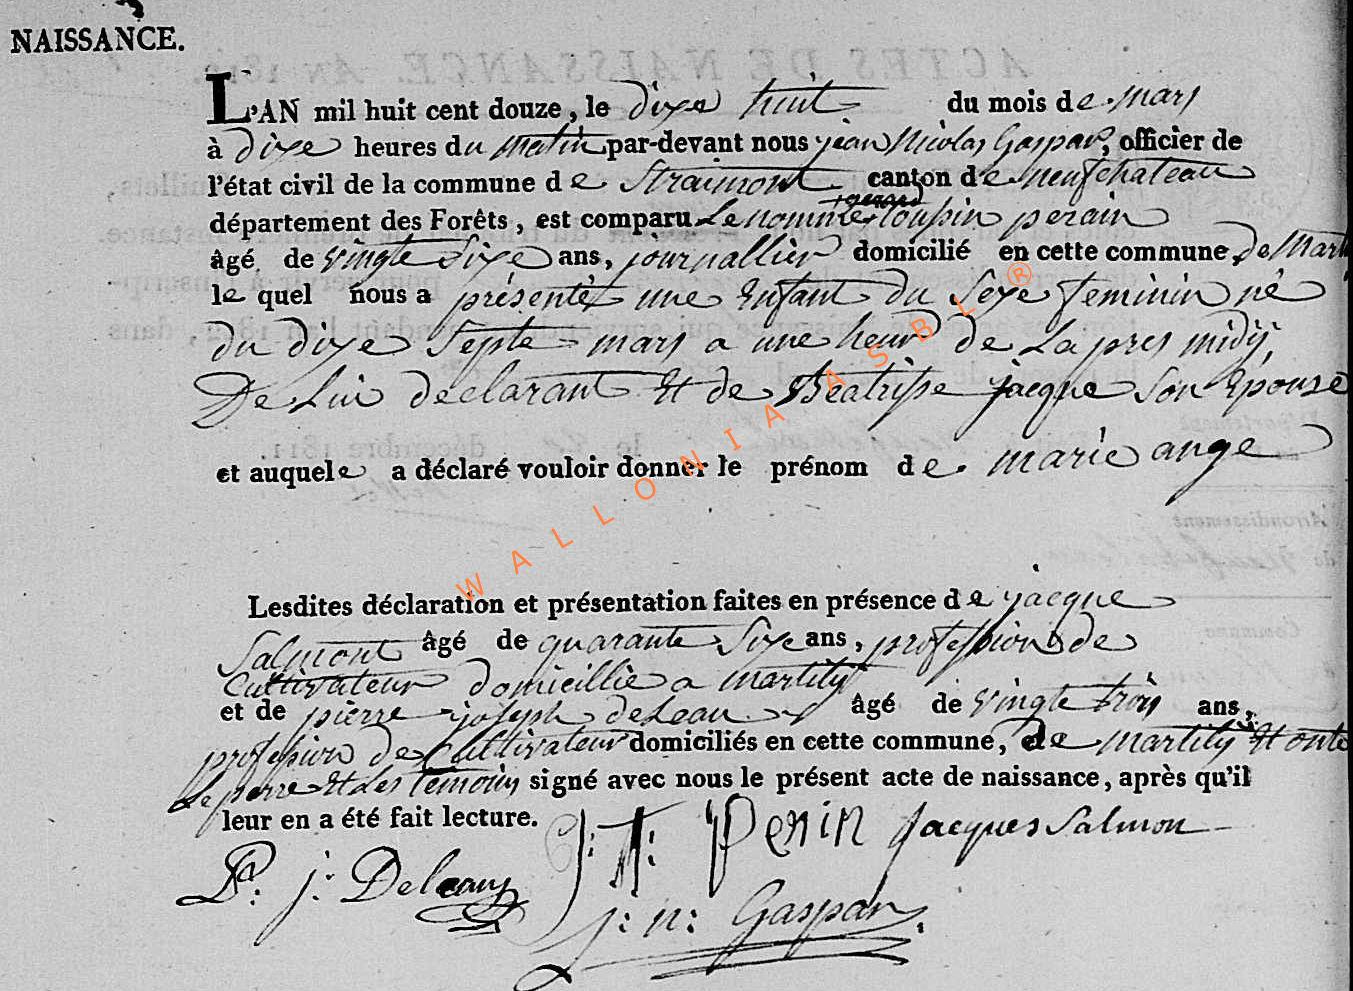 NAISSANCE.
L'AN mil huit cent douze, le dixe huit du mois de mars
à dixe heures du matin par-devant nous jean Nicolas Gaspar, officier de
l'état civil de la commune de Straimont canton de neufchateau
département des Forêts, est comparu Le nommé toupin perain
âgé de vingte Sixe ans, journallier domicilié en cette commune, de Mart
le quel nous a présentét une Enfant du Sexe feminin né
du dixe Septe mars a une heur de La pres midÿ,
De Lui declarant Et de Beatrisse jacque Son Epouse
et auquele a déclaré vouloir donner le prénom de marie ange
Lesdites déclaration et présentation faites en présence de jacque
Salmont âgé de quarante Sixe ans, profession de
Cultivateur domicillié a martilÿ
et de pierre joseph deleau âgé de vingte trois ans,
profession de Cultivateur domiciliés en cette commune, de martilÿ Et onte
Le perre Et Les temoins signé avec nous le présent acte de naissance, après qu'il
leur en a été fait lecture.
Perin Jacques Salmon
P: j: Deleau
j: n: Gaspar
WALLONIA ASBL ®